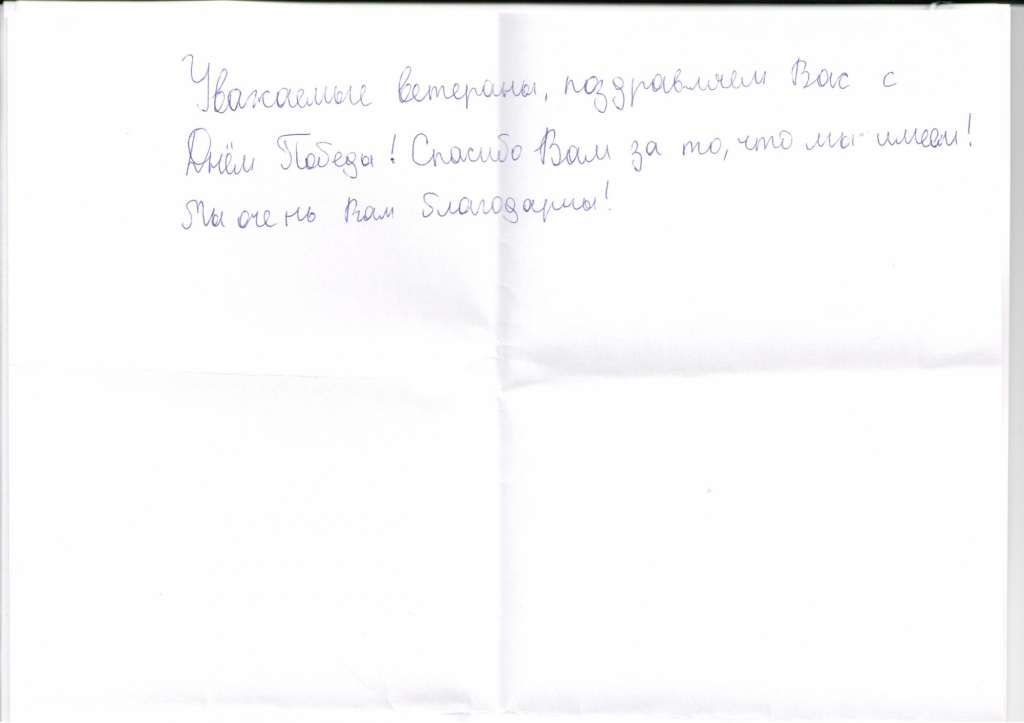 Уважаемые ветераны, поздравляем Вас с
Днём Победы! Спасибо Вам за то, что мы имеем!
Мы очень Вам благодарны!